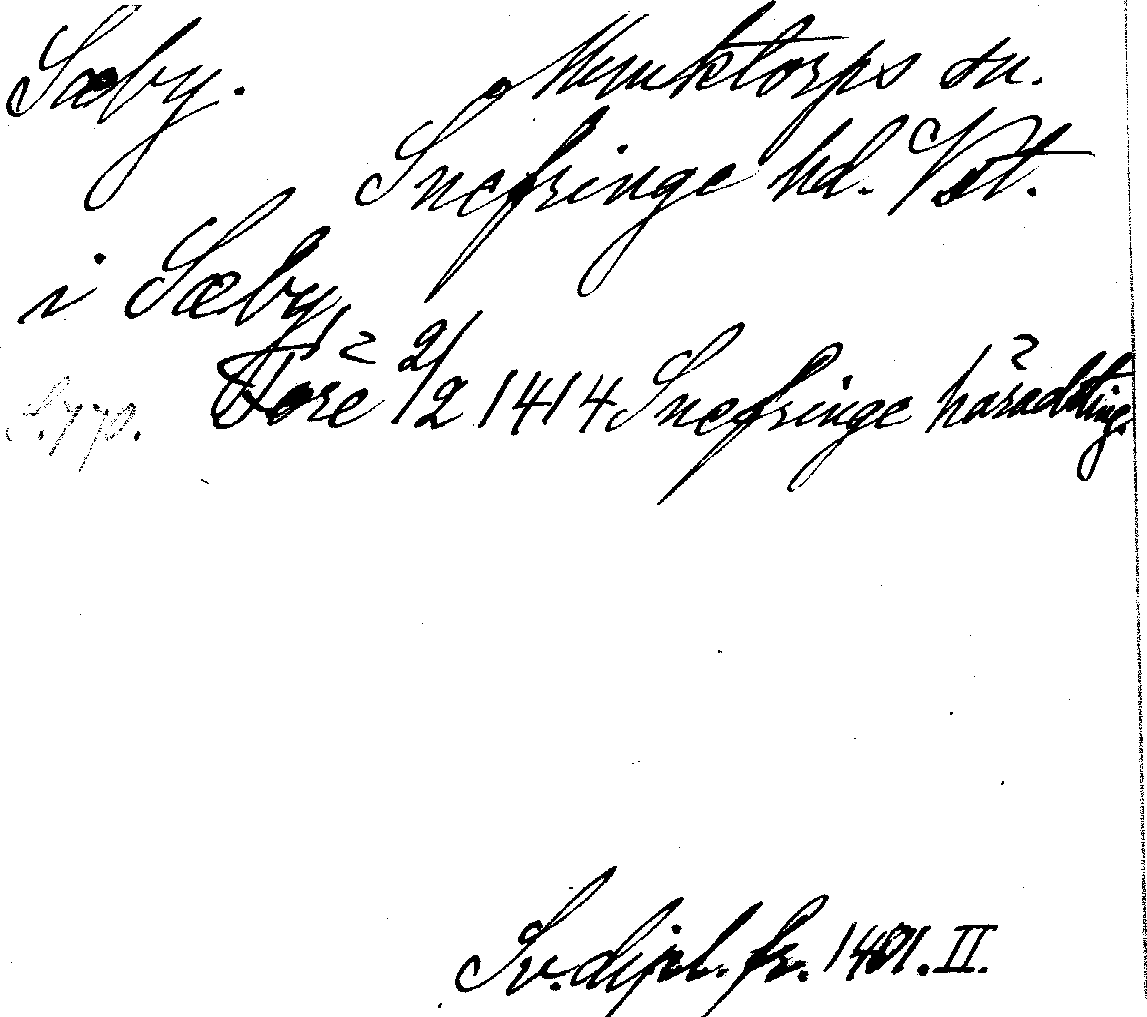 Sæby. Munktorps sn.
Snefringe hd. Vstl.
i Sæby
Tore 2/2 1414 Snefringe häradsting.
Sv. dipl. fr. 1401. II.